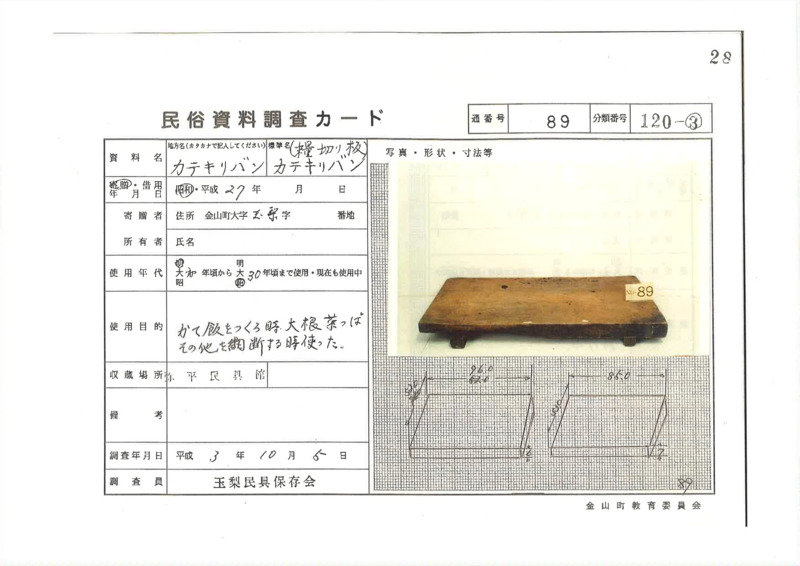 28
民俗資料調査カード
通番号 89 分類番号 120-③
資料名 地方名(カタカナで記入してください) カテキリバン 標準名 (糧切り板) カテキリバン
写真・形状・寸法等
寄贈・借用年月日 昭和・平成 27年 月 日
寄贈者 住所 金山町大字 玉梨 字 番地
所有者 氏名
使用年代 明大昭 初年頃から 明大昭 30年頃まで使用・現在も使用中
使用目的 かて飯をつくる時、大根葉っぱ
その他を裁断する時使った。
収蔵場所 平民具館
備考
調査年月日 平成 3年 10月 5日
調査員 玉梨民具保存会
89
96.0
85.0
89
金山町教育委員会